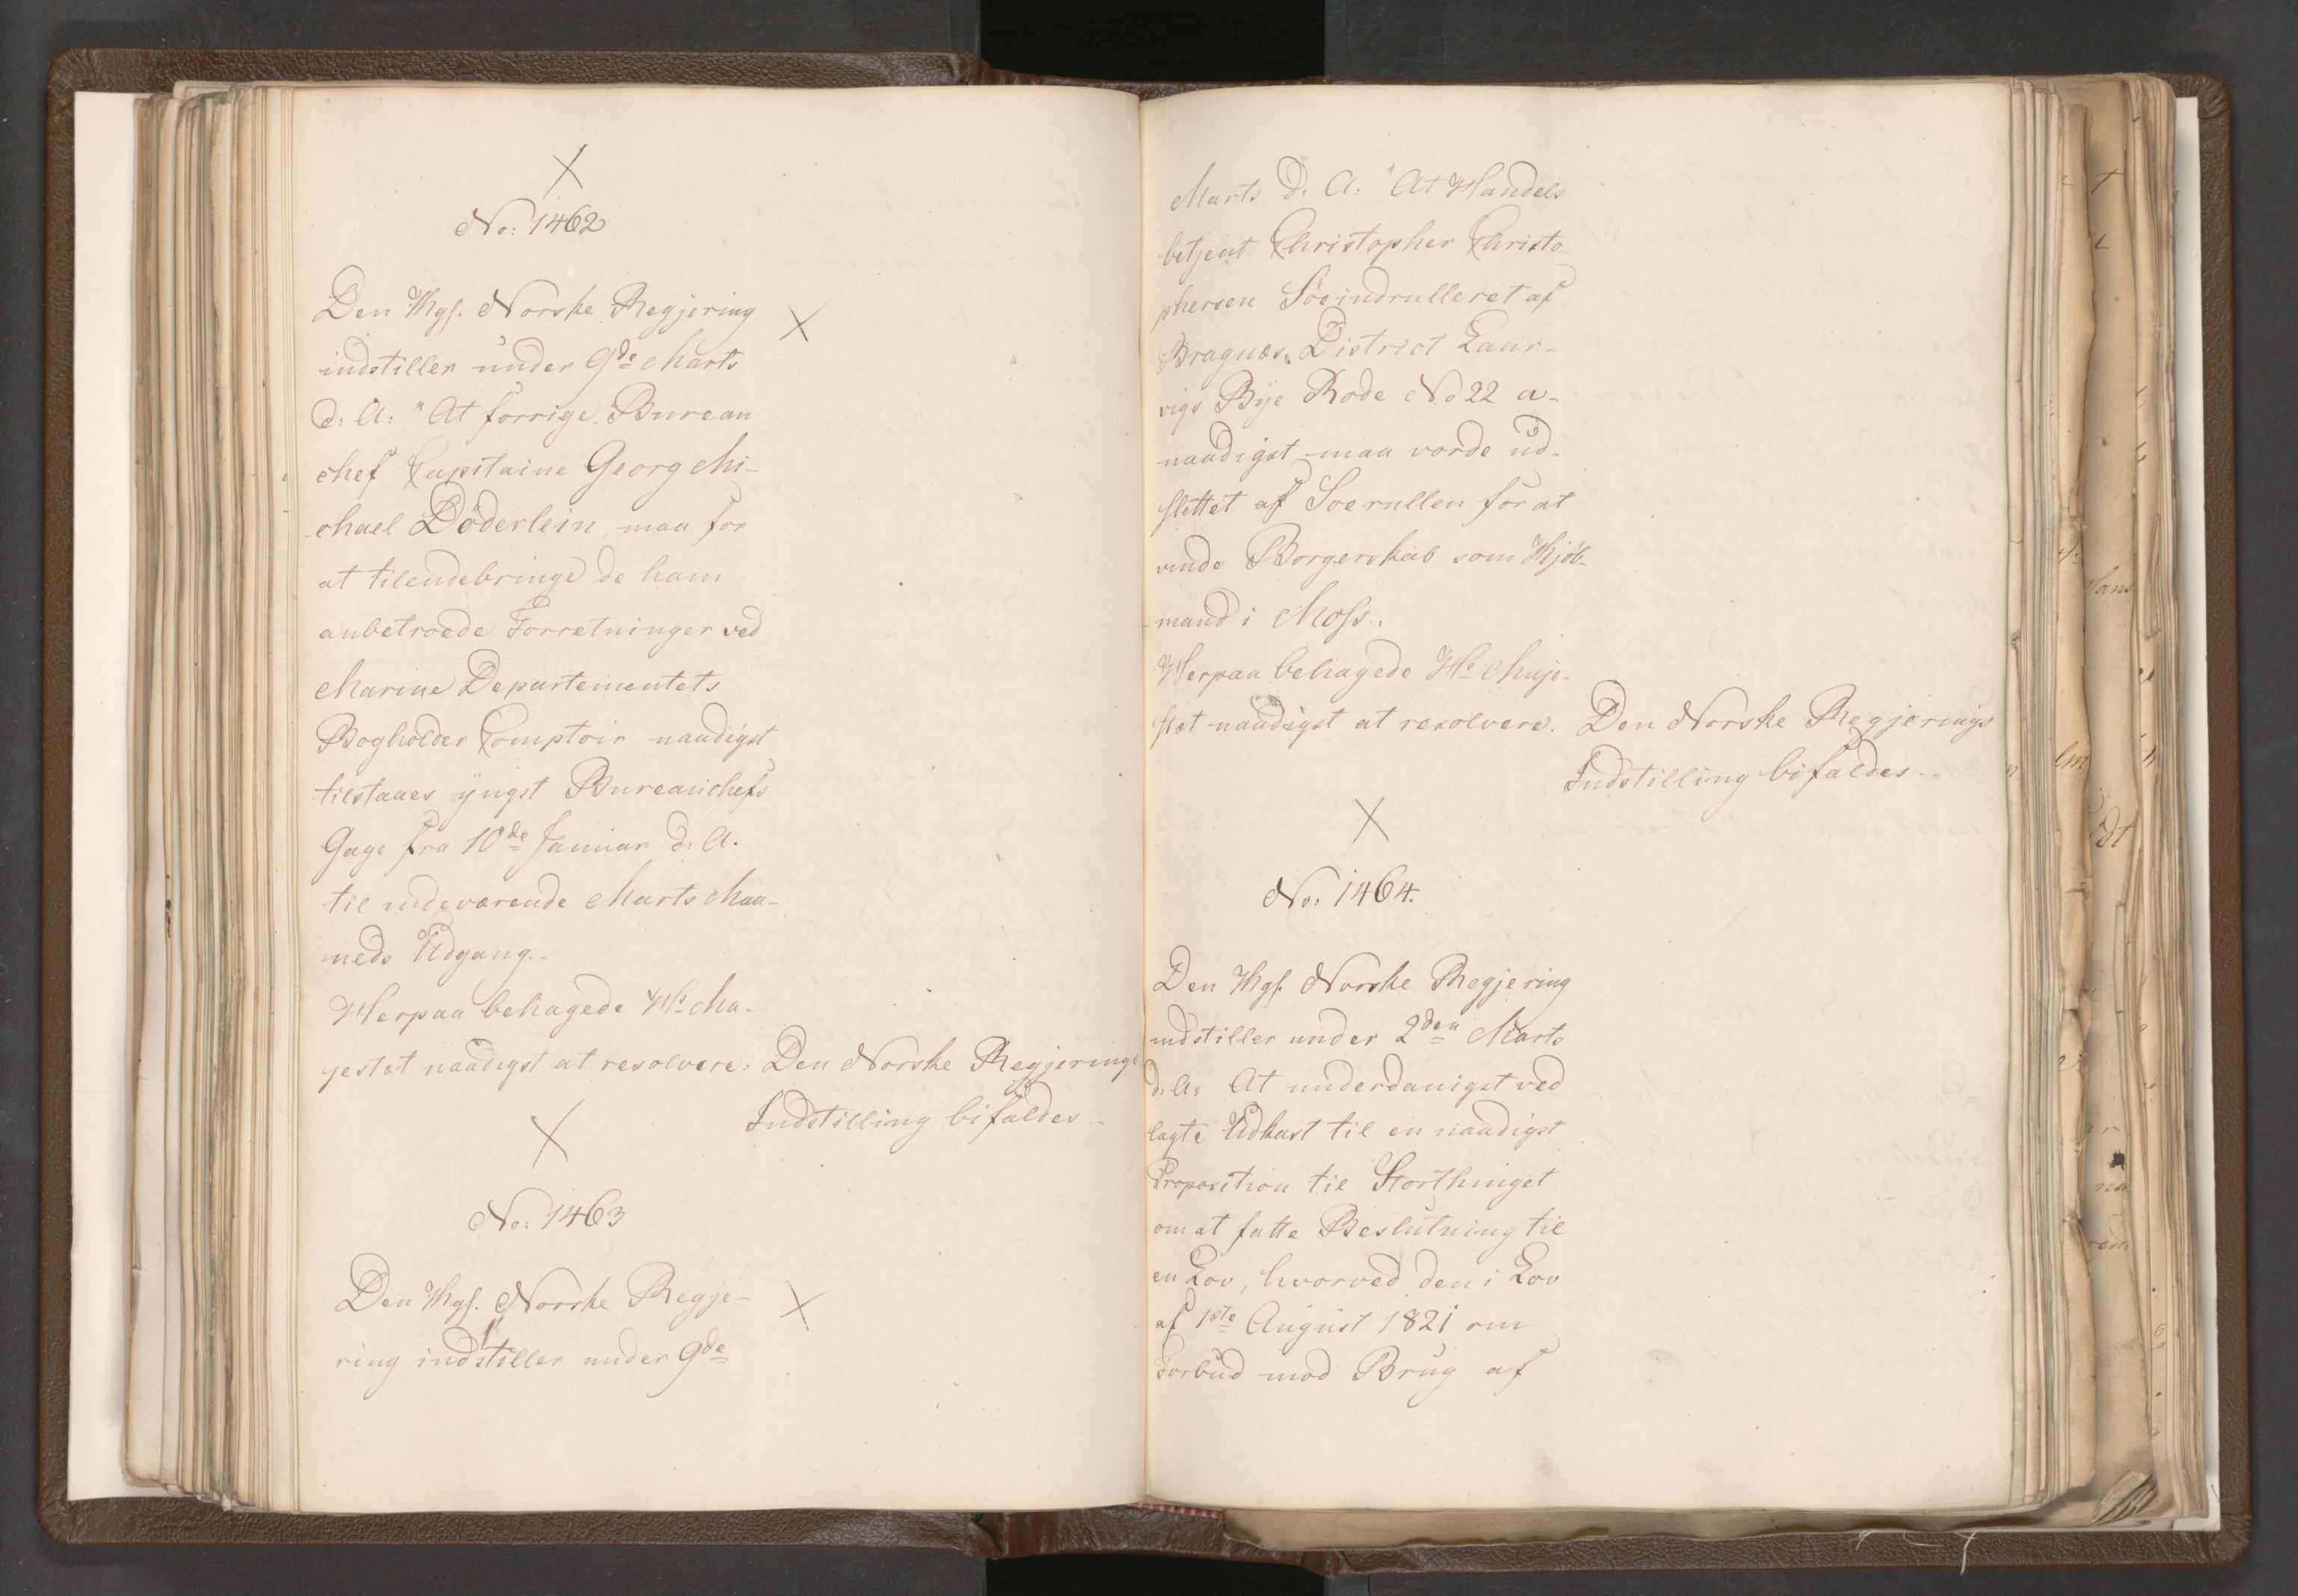 No: 1462
Den Kgs. Norske Regjering
indstiller under 9de Marts
d: A: "At forrige Bureau
chef Capitaine Georg Mi-
chael Döderlein maa for
at tilendebringe de ham
anbetroede Forretninger ved
Marine Departementets
Bogholder Comptoir naadigst
tilstaaes yngst Bureauchefs
Gage fra 10de Januar d: A.
til indeværende Marts Maa-
neds Udgang.-
Herpaa behagede Hs Ma-
jestæt naadigst at resolvere: Den Norske Regjerings
Indstilling bifaldes.-
No: 1463
Den Kgs. Norske Regje-
ring indstiller under 9de
Marts d. A: "At Handels
betjent Christopher Christo-
phersen Söeindrulleret af
Bragnæs District Laur-
vigs Bÿe Rode No 22
naadigst maa vorde ud-
slettet af Soerullen for at
vinde Borgerskab som Kjöb-
mand i Moss.
Herpaa behagede Hs Maje-
stæt naadigst at resolvere. Den Norske Regjerings
Indstilling bifaldes.
No: 1464.
Den Kgs. Norske Regjering
indstiller under 2den Marts
d. A: At underdanigst ved
lagte Udkast til en naadigst
Proposition til Storthinget
om at fatte Beslutning til
en Lov, hvorved den i Lov
af 1ste August 1821 om
Forbud mod Brug af